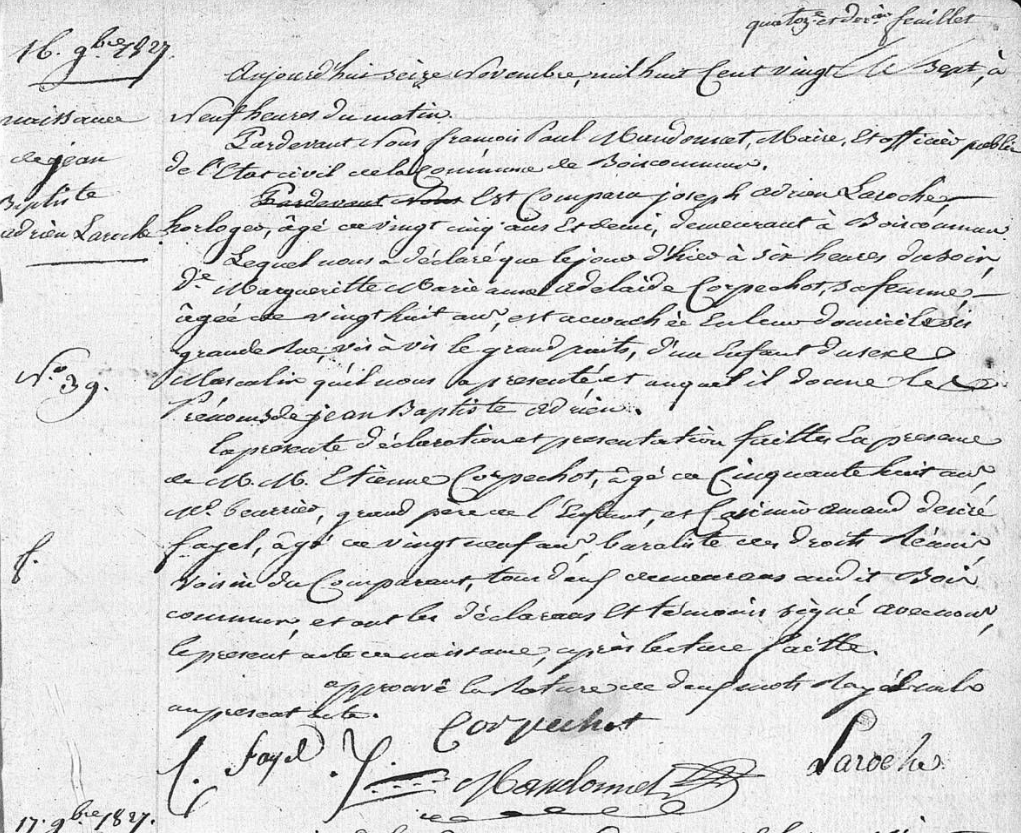 quatorze et der.er feuillet
16. 9bre 1827.
naissance
de jean
Baptiste
adrien Laroche
N.o 39.
f.
Aujourd'hui seize Novembre, mil huit Cent vingt Sept, à
Neuf heures du matin.
Pardevant Nous françois Paul Mandonnet, Maire, et officier public
de l'Etat civil de la Commune de Boiscommun.
Pardevant Nous Est Comparu joseph adrien Laroche,
horloger, âgé de vingt cinq ans Et demi, demeurant à Boiscommun.
Lequel nous a déclaré que le jour d'hier à six heures du soir,
D.e Margueritte Marie anne adelaïde Corpechot, sa femme,
âgée de vingt huit ans, est accouchée En leur domicile sis
grande Rue, vis à vis le grand puits, d'un Enfant du sexe
Masculin qu'il nous a présenté et auquel il donne les
Prénoms de jean Baptiste adrien.
la présente déclaration et présentation faittes En présence
de M. M. Etienne Corpechot, âgé de Cinquante huit ans,
M.d beurrier, grand père de l'Enfant, et Casimir amand désiré
fayel, âgé de vingt neuf ans, buraliste des Droits Réunis,
voisin du Comparant, tous deux demeurans audit Bois
commun, et ont les déclarans Et témoins signé avec nous,
le présent acte de naissance, après lecture faitte.
approuvé la Rature de deux mots Rayés nuls
au présent acte.
Corpechot
C. fayel
Mandonnet
Laroche
17. 9bre 1827.